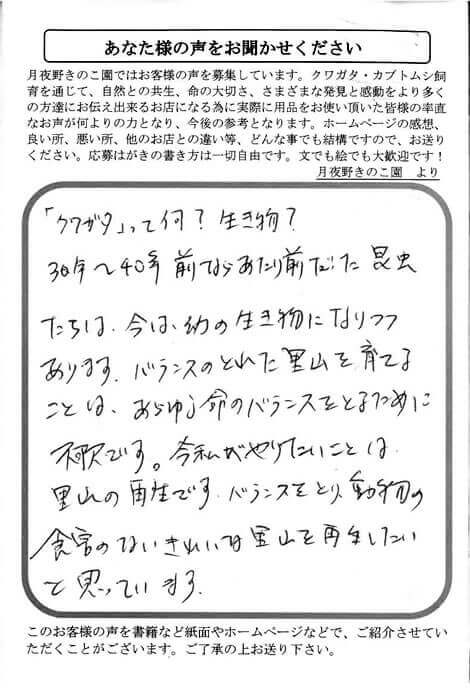 あなた様の声をお聞かせください
月夜野きのこ園ではお客様の声を募集しています。クワガタ・カブトムシ飼
育を通じて、自然との共生、命の大切さ、さまざまな発見と感動をより多く
の方達にお伝え出来るお店になる為に実際に用品をお使い頂いた皆様の率直
なお声が何よりの力となり、今後の参考となります。ホームページの感想、
良い所、悪い所、他のお店との違い等、どんな事でも結構ですので、お送り
ください。応募はがきの書き方は一切自由です。文でも絵でも大歓迎です！
月夜野きのこ園 より
「クワガタ」って何？生き物？
30年〜40年前ならあたり前だった昆虫
たちは、今は、幻の生き物になりつつ
あります。バランスのとれた里山を育てる
ことは、あらゆる命のバランスをとるために
不可欠です。今私がやりたいことは、
里山の再生です。バランスをとり、動物の
食害のないきれいな里山を再生したい
と思っています。
このお客様の声を書籍など紙面やホームページなどで、ご紹介させてい
ただくことがございます。ご了承の上お送り下さい。